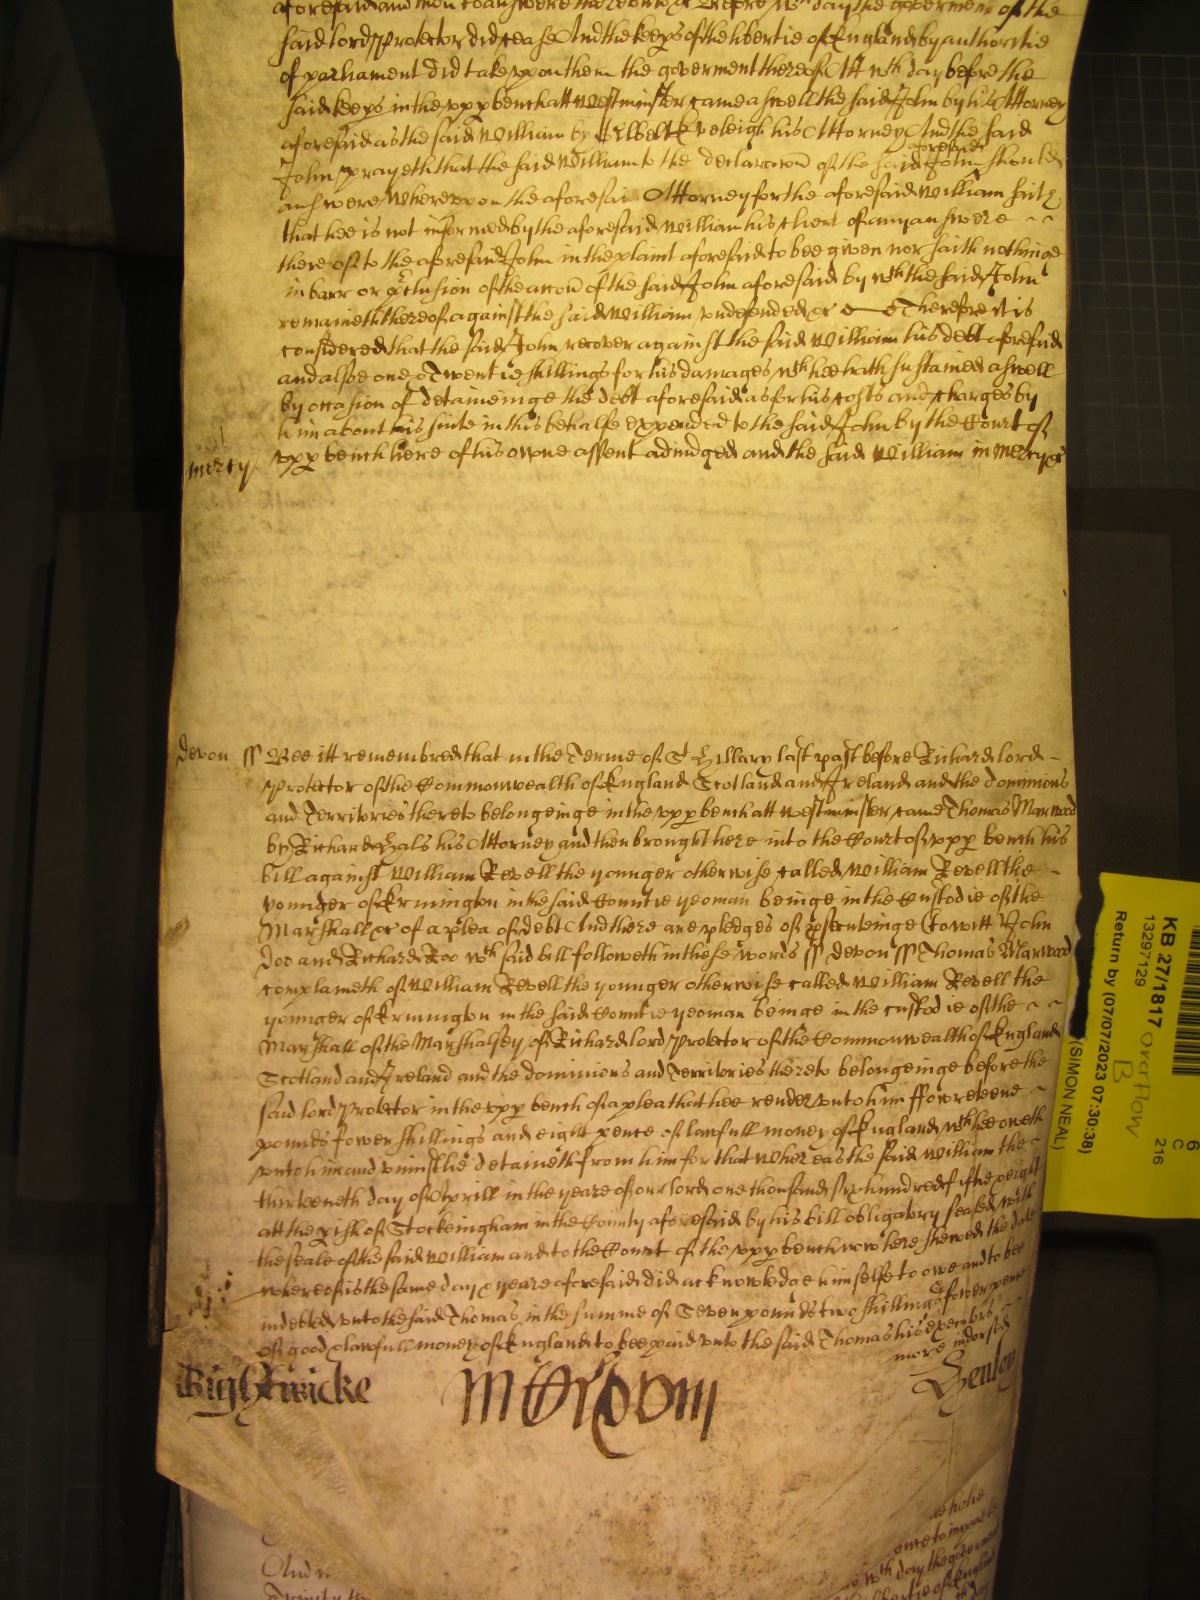 aforesaid and then to answere the
day the goverment of the
said lord Protector did cease And the keeps of the libertie of England by authoritie
of parliament did take upon them the goverment thereof Att wch day before the
said keeps in the upp bench att Westminster came aswell the said John by his Attorney
aforesaid as the said William by his Attorney And the said
John prayeth that the said William to the declaracon of the said John aforesaid should
answere Whereupon the aforesaid Attorney for the aforesaid William saith
that hee is not informed by the aforesaid William his client of any answere ~ ~
there of to the aforesaid John in the plaint aforesaid to bee given nor saith nothinge
in barr or pclusion of the accon of the said John aforesaid by wch the said John
remaineth thereof against the said William undefended &c Therefore it is
considered that the said John recover against the said William his debt aforesaid
and alsoe one & Twentie shillings for his damages wch hee hath sustained aswell
by occasion of detaineinge the debt aforesaid as for his costs and charges by
him about his suite in this behalfe expended to the said John by the Court of
mercy upp bench here of his owne assent adiudged and the said William in mercy &c
Devon ss Bee itt remembred that in the Terme of St Hillary last past before Richard lord -
Protector of the Commonwealth of England Scotland and Ireland and the dominions
and Territories thereto belongeinge in the upp bench att Westminster came Thomas Marwood
by Richard Hals his Attorney and then brought here into the Court of upp bench his
bill against William Revell the younger otherwise called William Revell the -
younger of Ermington in the said Countie yeoman beinge in the Custodie of the
Marshall &c of a plea of debt And there are pledges of psecuteinge (to witt) John
Doo and Richard Roo wch said bill followeth in these words ss Devon ss Thomas Marwood
complaineth of William Revell the younger otherwise called William Revell the
younger of Ermington in the said Countie yeoman beinge in the custodie of the ~ ~
Marshall of the Marshalsey of Richard lord Protector of the Commonwealth of England
Scotland and Ireland and the dominions and Territories thereto belongeinge before the
said lord Protector in the upp bench of a plea that hee render unto him ffowreteene ~
pounds fower shillings and eight pence of lawfull money of England wch hee oweth
unto him and uniustlie detaineth from him for that Whereas the said William the ~
thirteenth day of Aprill in the yeare of our lord one thousand six hundred fiftie & eight
att the pish of Stockeingham in the County aforesaid by his bill obligatory sealed with
the seale of the said William and to the Court of the upp bench now here shewed the date
whereof is the same day & yeare aforesaid did acknowledge himselfe to owe and to bee
indebted unto the said Thomas in the summe of Seven pounds two shillings & fower pence
of good & lawfull money of England to bee paid unto the said Thomas his executors
more indorsed
Henley
wch day the goverment
KB 27/1817 overflow
B
13297129
Return by (07/07/2023 07:30:38)
(SIMON NEAL)
6
C
216